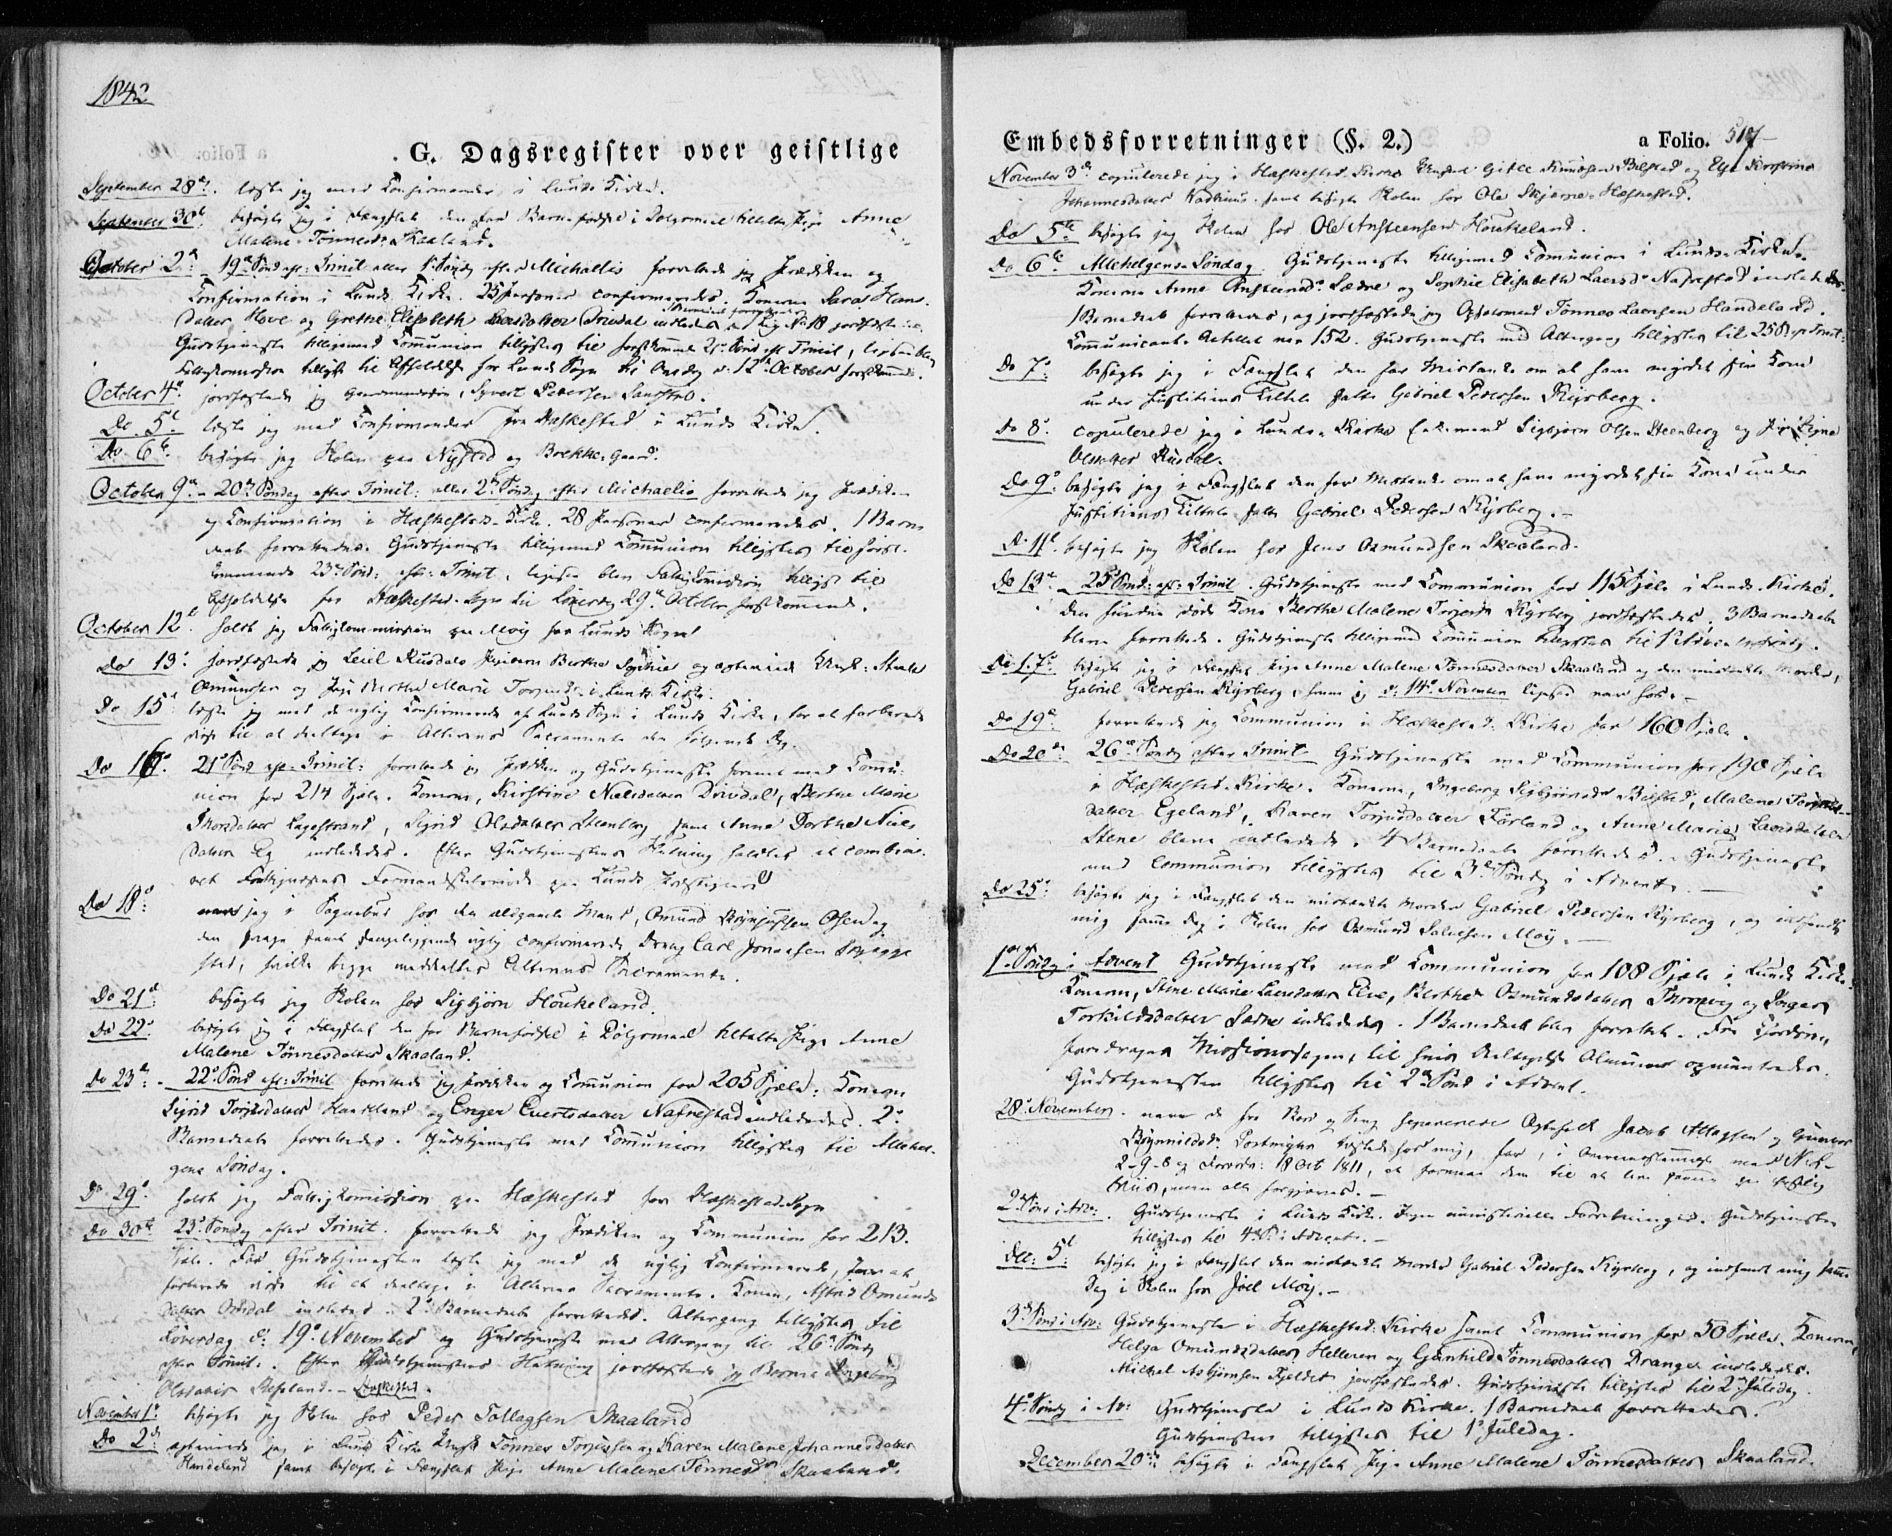 1842
G. Dagsregister over geistlige
September 28de læste jeg med Confirmander i Lunds Kirke.
September 30te besøgte jeg i Fængslet den for Barnefødsel i Dølgsmaal tiltalte Pige Anne
Malene Tønnesdr Skaaland.
October 2den 19de Sønd. eft. Trinit. eller 1 Søndg efter Michaelis forrettede jeg Prædiken og
Confirmation i Lunds Kirke. 25 Personer confirmeredes. Konerne Sara Hans-
datter Hove og Grethe Elisabeth Larsdatter Drivdal indlededes. Lig No 18 jordfæstedes.
Gudstjeneste tilligemed Communion tillystes til førstkomm. 21de Sønd. eft. Trinit,
Falkskommission tillyst til Afholdelse for Lunds Sogn til Onsdag d. 12te October førstkomm.
October 4de jordfæstede jeg Syvert Pedersen
Do 5te læste jeg med Confirmander fra Hæskestad i Lunds Kirke.
Do 6te besøgte jeg Skolen paa Nysted og Brekke Gaard.
October 9de 20de Søndag efter Trinit: eller 2den Søndg efter Michaelis forrettede jeg Prædiken
og Confirmation i Hæskestads Kirke. 28 Personer confirmeredes. 1 Barne-
daab forrettedes. Gudstjeneste tilligemed Communion tillystes til først-
kommende 23de Sønd: eft: Trinit, ligesaa blev Falkskommission tillyst til
Afholdelse for Hæskestad Sogn til Løverdag 29de October førstkommende.
October 12te holdt jeg Falkskommission paa Moij for Lunds Sogn
Do 13de jordfæstede jeg Berthe Sophie og copulerede Ungk:
Osmundsen og Pige Berthe Marie i Lunds Kirke.
Do 15de læste jeg med de nylig Confirmerede af Lunds Sogn i Lunds Kirke, for at forberede
disse til at deeltage i Alterens Sacramente den følgende Dag.
Do 16de 21de Sønd eft: Trinit: forrettede jeg Prædiken og Gudstjeneste med Commu-
nion for 214 Sjæle. Konerne, Kirstine Nielsdatter Drivdal, Berthe Marie
Thorsdatter Lagestrand, Sigrid Olsdatter Steenberg samt Anne Dorthe Niels-
datter Eg indlededes. Efter Gudstjenestens Holdning holdtes et combine-
ret Formandskabsmøde paa Lunds Præstegaard
Do 18de jeg i Sognebud hos den aldgamle Mand, Omund Olsen og
den syge samt sengeliggende nylig confirmerede Dreng Carl Jonassen
stad, hvilke begge meddeeltes Alterens Sacramente.
Do 21de besøgte jeg Skolen hos Sigbjørn Houkeland.
Do 22de besøgte jeg i Fængslet den for Barnefødsel i Dølgsmaal tiltalte Pige Anne
Malene Tønnesdatter Skaaland.
Do 23de 22de Sønd eft: Trinit forrettede jeg Prædiken og Communion for 205 Sjæle: Konerne
Sigrid Torjesdatter Haukland og Enger Evertsdatter Nafrestad indlededes. 2de
Barnedaab forrettedes. Gudstjeneste med Communion tillystes til Allehel-
gens Søndag.
Do 29de holdt jeg Falkskommission paa Hæskestad for Hæskestad Sogn
Do 30te 23de Søndg efter Trinit. forrettede jeg Prædiken og Communion for 213
Sjæle. Før Gudstjenesten læste jeg med de nylig Confirmerede, for at
forberede disse til at deeltage i Alterens Sacramente. Konen, Astrid Osmunds-
datter indledet. 2 Barnedaab forrettedes. Altergang tillystes til
Løverdag d. 19de November og Gudstjeneste med Altergang til 26de Søndg
efter Trinit. Efter Gudstjenestens Holdning jordfæstede jeg Barnet Ingeborg
Olsdatter Hæskestad.
November 1ste besøgte jeg Skolen hos Peder Tollagsen Skaaland
Do 2den copulerede jeg i Lunds Kirke Ungk Tønnes Torjussen og Karen Malene Johannesdatter
Handeland samt besøgte i Fængslet Pige Anne Malene Tønnesdr Skaaland.
Embedsforretninger (§. 2.) a Folio. 517
November 3de copulerede jeg i Hæskestad Kirke Ungkarl Gitle Knudsen Bilstad og Else Kirstine
Johannesdatter samt besøgte Skolen hos Ole Hæskestad.
Do 5te besøgte jeg Skolen hos Ole Ansteensen Houkeland.
Do 6te Allehelgens Søndag Gudstjeneste tilligemed Communion i Lunds Kirke.
Konerne Anne Sædne og Sophie Elisabeth Larsdr Nafrestad indlededes.
1 Barnedaab forrettedes, og jordfæstede jeg Tønnes Larsen Handeland.
Communicant Antallet var 152. Gudstjeneste med Altergang tillystes til 25 S. eft Trinit:
Do 7de besøgte jeg i Fængslet den for Mistanke om at have myrdet sin Kone
under Justitiens Tiltale satte Gabriel Pedersen Rysberg.
Do 8de copulerede jeg i Lunds Kirke Enkemand Sigbjørn Olsen Steenberg og Pige Signe
Olsdatter Rusdal.
Do 9de besøgte jeg i Fængslet den for Mistanke om at have myrdet sin Kone under
Justitiens Tiltale satte Gabriel Pedersen Rysberg.
Do 11te besøgte jeg Skolen hos Jens Osmundsen Skaaland.
Do 13de 25de Sønd: eft: Trinit. Gudstjeneste med Communion for 115 Sjæle i Lunds Kirke.
Den døde Kone Berthe Malene Rysberg jordfæstedes. 3 Barnedaab
bleve forrettede. Gudstjeneste tilligemed Communion tillystes til 1ste Advents Søndg.
Do 17de besøgte jeg i Fængslet Pige Anne Malene Tønnesdatter Skaaland og den mistænkte Morder,
Gabriel Pedersen Rysberg, som jeg d. 14de November ligesaa var hos.
Do 19de forrettede jeg Communion i Hæskestad Kirke for 160 Sjæle.
Do 20de 26de Søndg efter Trinit Gudstjeneste med Communion for 190 Sjæle
i Hæskestad Kirke. Konerne, Ingeborg Sigbjørnsdr Bilstad, Malene
datter Egeland, Karen Torjusdatter Førland og Anne Marie Larsdatter
Stene bleve indledede. 4 Barnedaab forrettedes. Gudstjeneste
med Communion tillystes til 3de Søndg i Advent.
Do 25de besøgte jeg i Fængslet den mistænkte Morder Gabriel Pedersen Rysberg, og indfandt
mig samme Dag i Skolen hos Osmund Salvesen Moij.
1ste Søndg i Advent Gudstjeneste med Communion for 108 Sjæle i Lunds Kirke.
Konerne, Stine Marie Larsdatter Eie, Berthe Osmundsdatter og Inger
Torkildsdatter Sædne indlededes. 1 Barnedaab blev forrettet.
foredrages Missionssagen, til hvis Almuen opmuntredes.
Gudstjenesten tillystes til 2den Sønd i Advent.
28de November vare de fra Bord og Seng separerede Ægtefolk Jacob Attagsen og Gunvor
hos mig, for, i Overeensstemmelse med N. L.
2-9-8 og Forordn: 18 Oct 1811, at formaae dem til at leve sammen
men alt forgjæves.
2den Sønd i Adv: Gudstjeneste i Lunds Kirke. Ingen ministerielle Forretninger. Gudstjenesten
tillystes til 4de S. i Advent.
Dec: 5te besøgte jeg i Fængslet den mistænkte Morder Gabriel Pedersen Rysberg, og indfandt mig samme
Dag i Skolen hos Joel Moij.
3de Sønd i Adv: Gudstjeneste i Hæskestad Kirke samt Communion for 50 Sjæle. Konerne,
Helga Omundsdatter Helleren og Gunhild Tønnesdatter Drange indlededes.
Mikkel Asbjørnsen Fjeldet jordfæstedes. Gudstjeneste tillystes til 2den Juledag.
4de Søndg i Av: Gudstjeneste i Lunds Kirke. 1 Barnedaab forrettedes.
Gudstjenesten tillystes til 1ste Juledag.
December 20de besøgte i Fængslet Pige Anne Malene Tønnesdatter Skaaland.